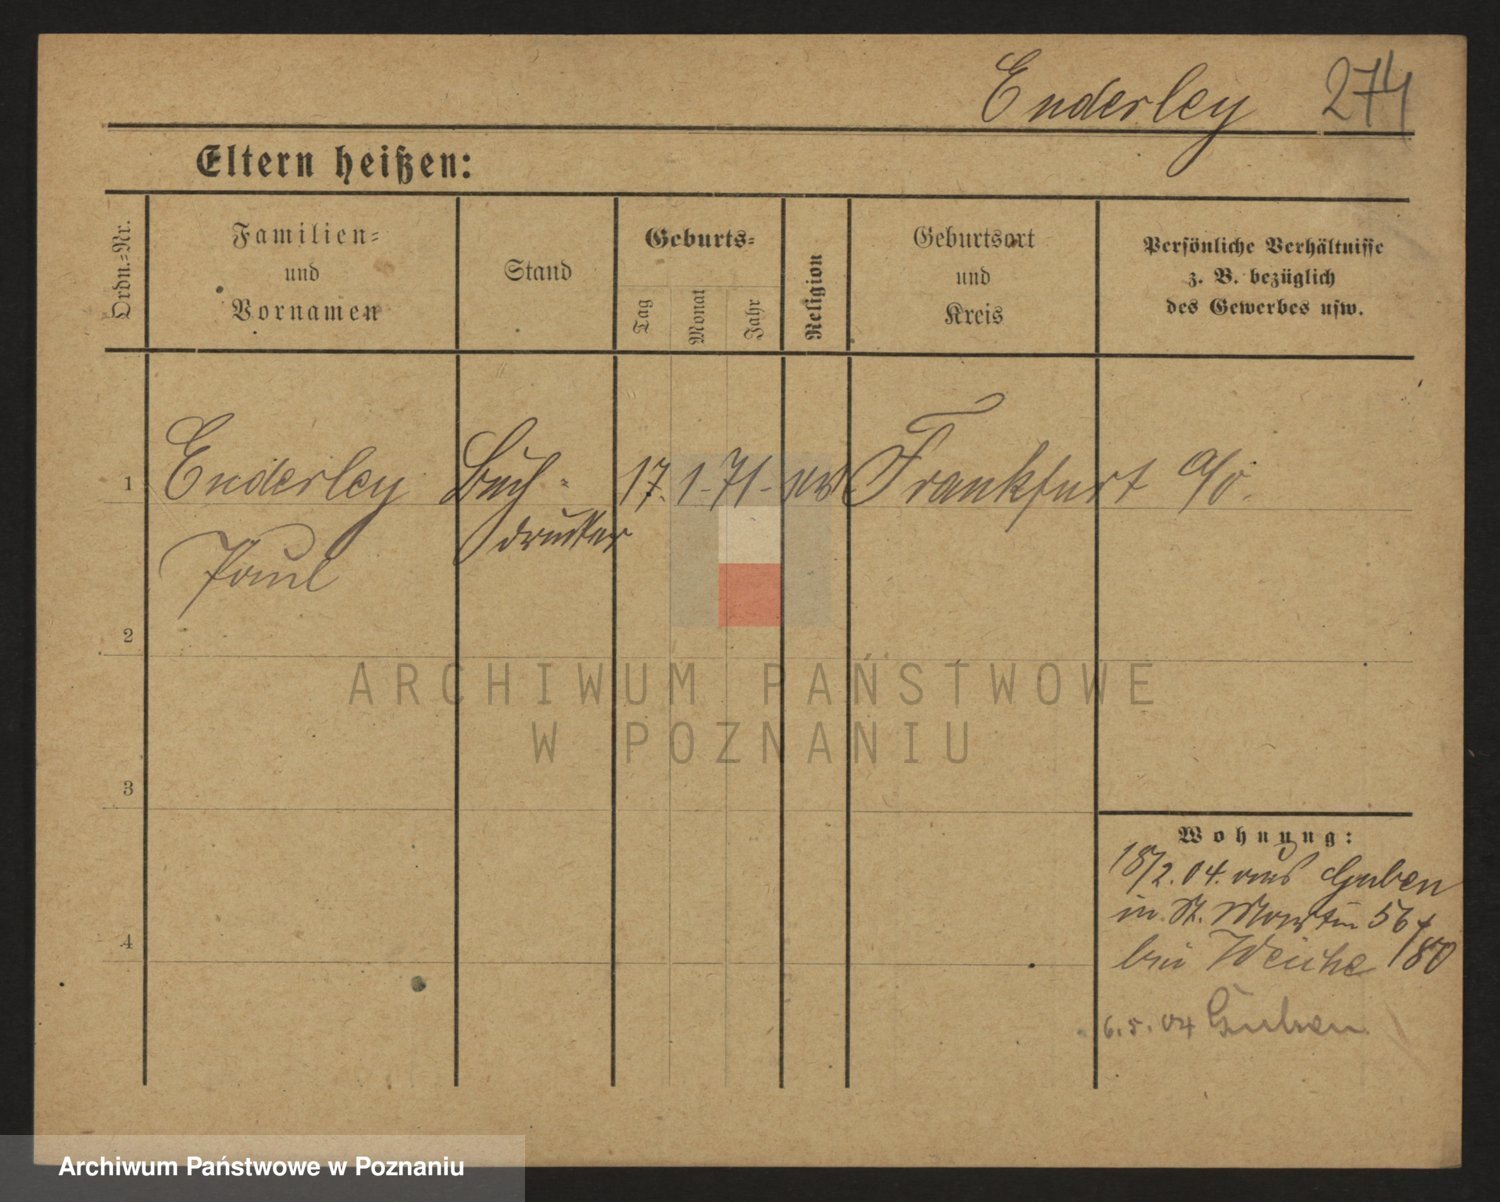 Enderley 274
Eltern heißen:
Ordn.-Nr.
Familien-
und
Vornamen
Stand
Geburts-
Tag
Monat
Jahr
Religion
Geburtsort
und
Kreis
Persönliche Verhältnisse
z. B. bezüglich
des Gewerbes usw.
1 Enderley Buch- 17. 1. 71. ev Frankfurt a/O.
drucker
Paul
2
3
4
Wohnung:
18/2. 04. aus Guben
in St. Martin 56
bei Weiche
6. 5. 04 Guben
ARCHIWUM PAŃSTWOWE
W POZNANIU
Archiwum Państwowe w Poznaniu